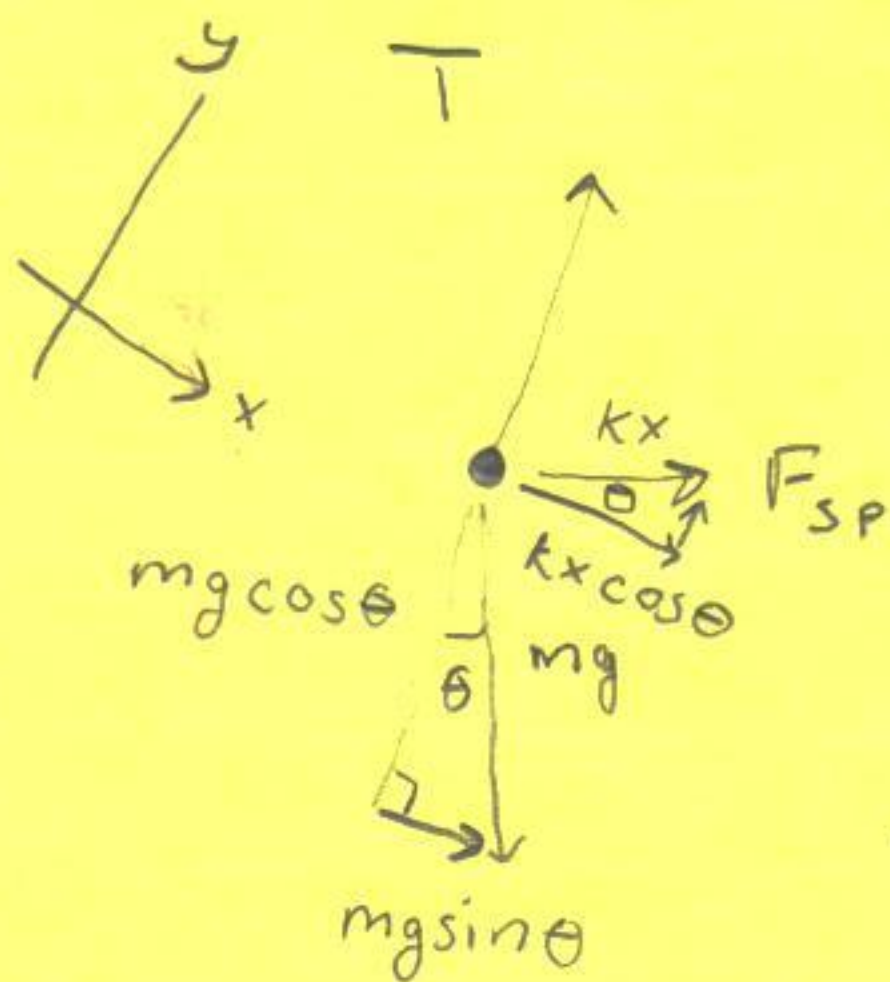 y
T
x
kx
θ
F_sp
kx cosθ
mg cosθ
θ
mg
mg sinθ